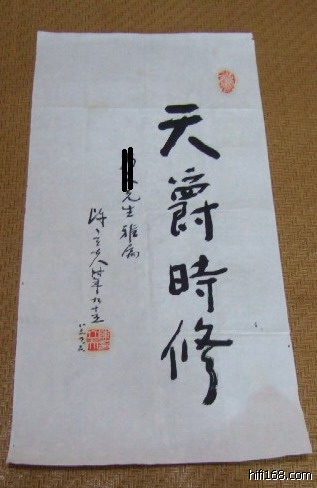 天爵時修
先生雅屬
時年九十五
hifi168.com